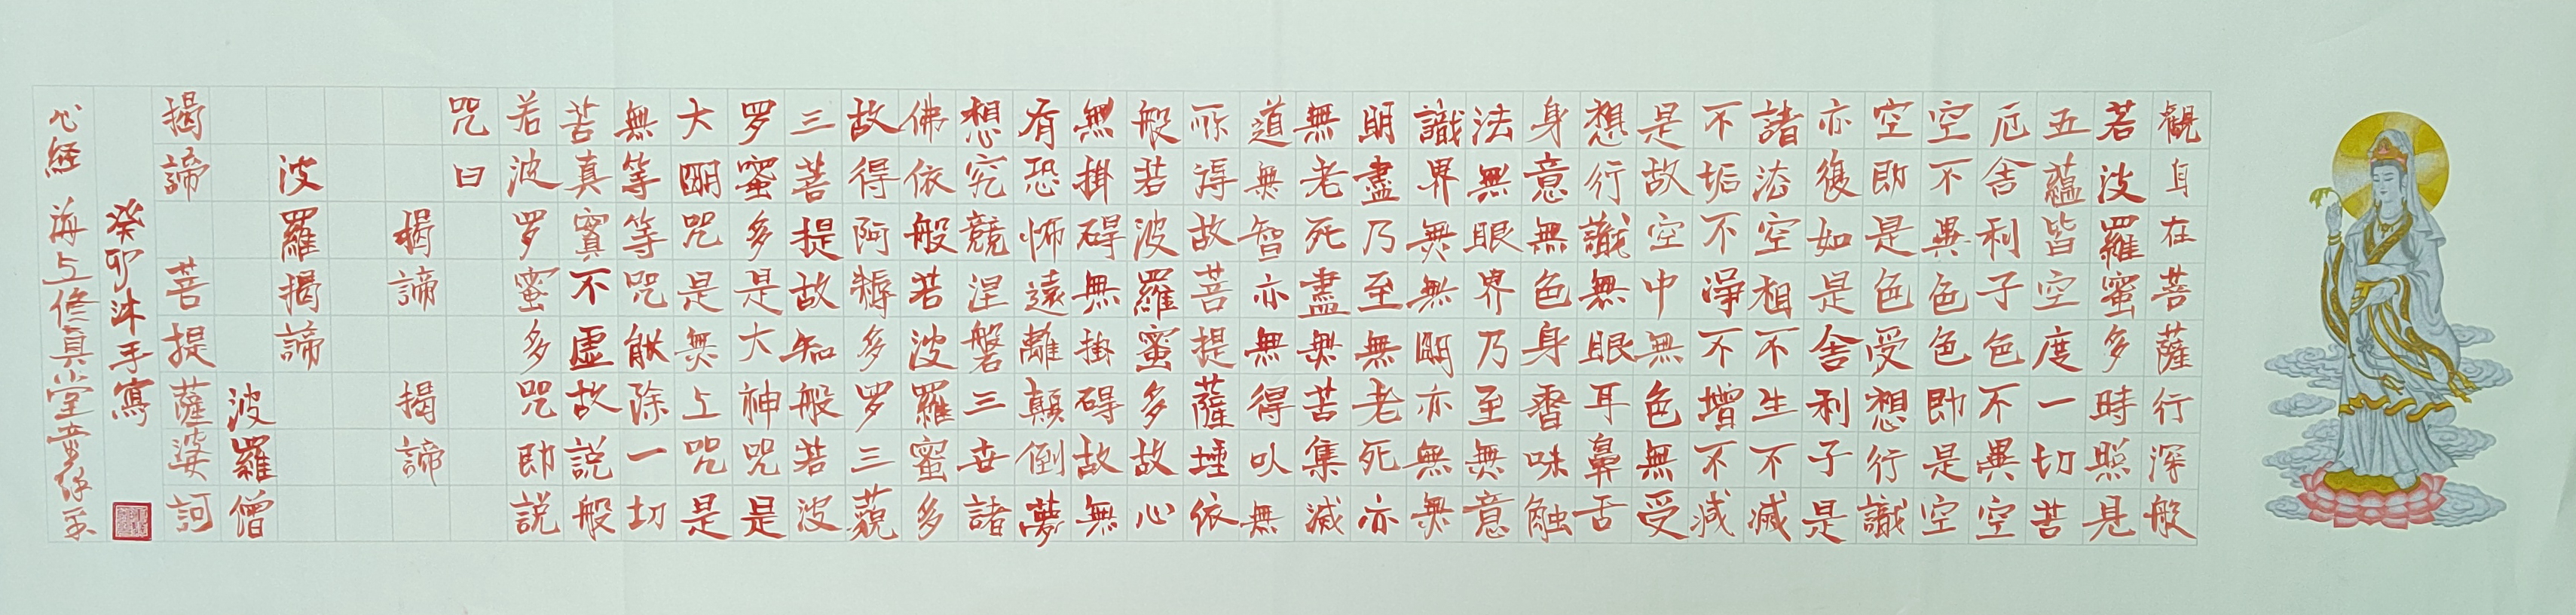 觀自在菩薩行深般
若波羅蜜多時照見
五蘊皆空度一切苦
厄舍利子色不異空
空不異色色即是空
空即是色受想行識
亦復如是舍利子是
諸法空相不生不滅
不垢不淨不增不減
是故空中無色無受
想行識無眼耳鼻舌
身意無色身香味触
法無眼界乃至無意
識界無無明亦無無
明盡乃至無老死亦
無老死盡無苦集滅
道無智亦無得以無
所得故菩提薩埵依
般若波羅蜜多故心
無掛碍無掛碍故無
有恐怖遠離顛倒夢
想究競涅槃三世諸
佛依般若波羅蜜多
故得阿耨多罗三藐
三菩提故知般若波
罗蜜多是大神咒是
大明咒是無上咒是
無等等咒能除一切
苦真實不虛故説般
若波罗蜜多咒即説
咒曰
揭諦 揭諦
波羅揭諦
波羅僧
揭諦 菩提薩婆訶
癸卯沐手寫
心経 海上修真堂